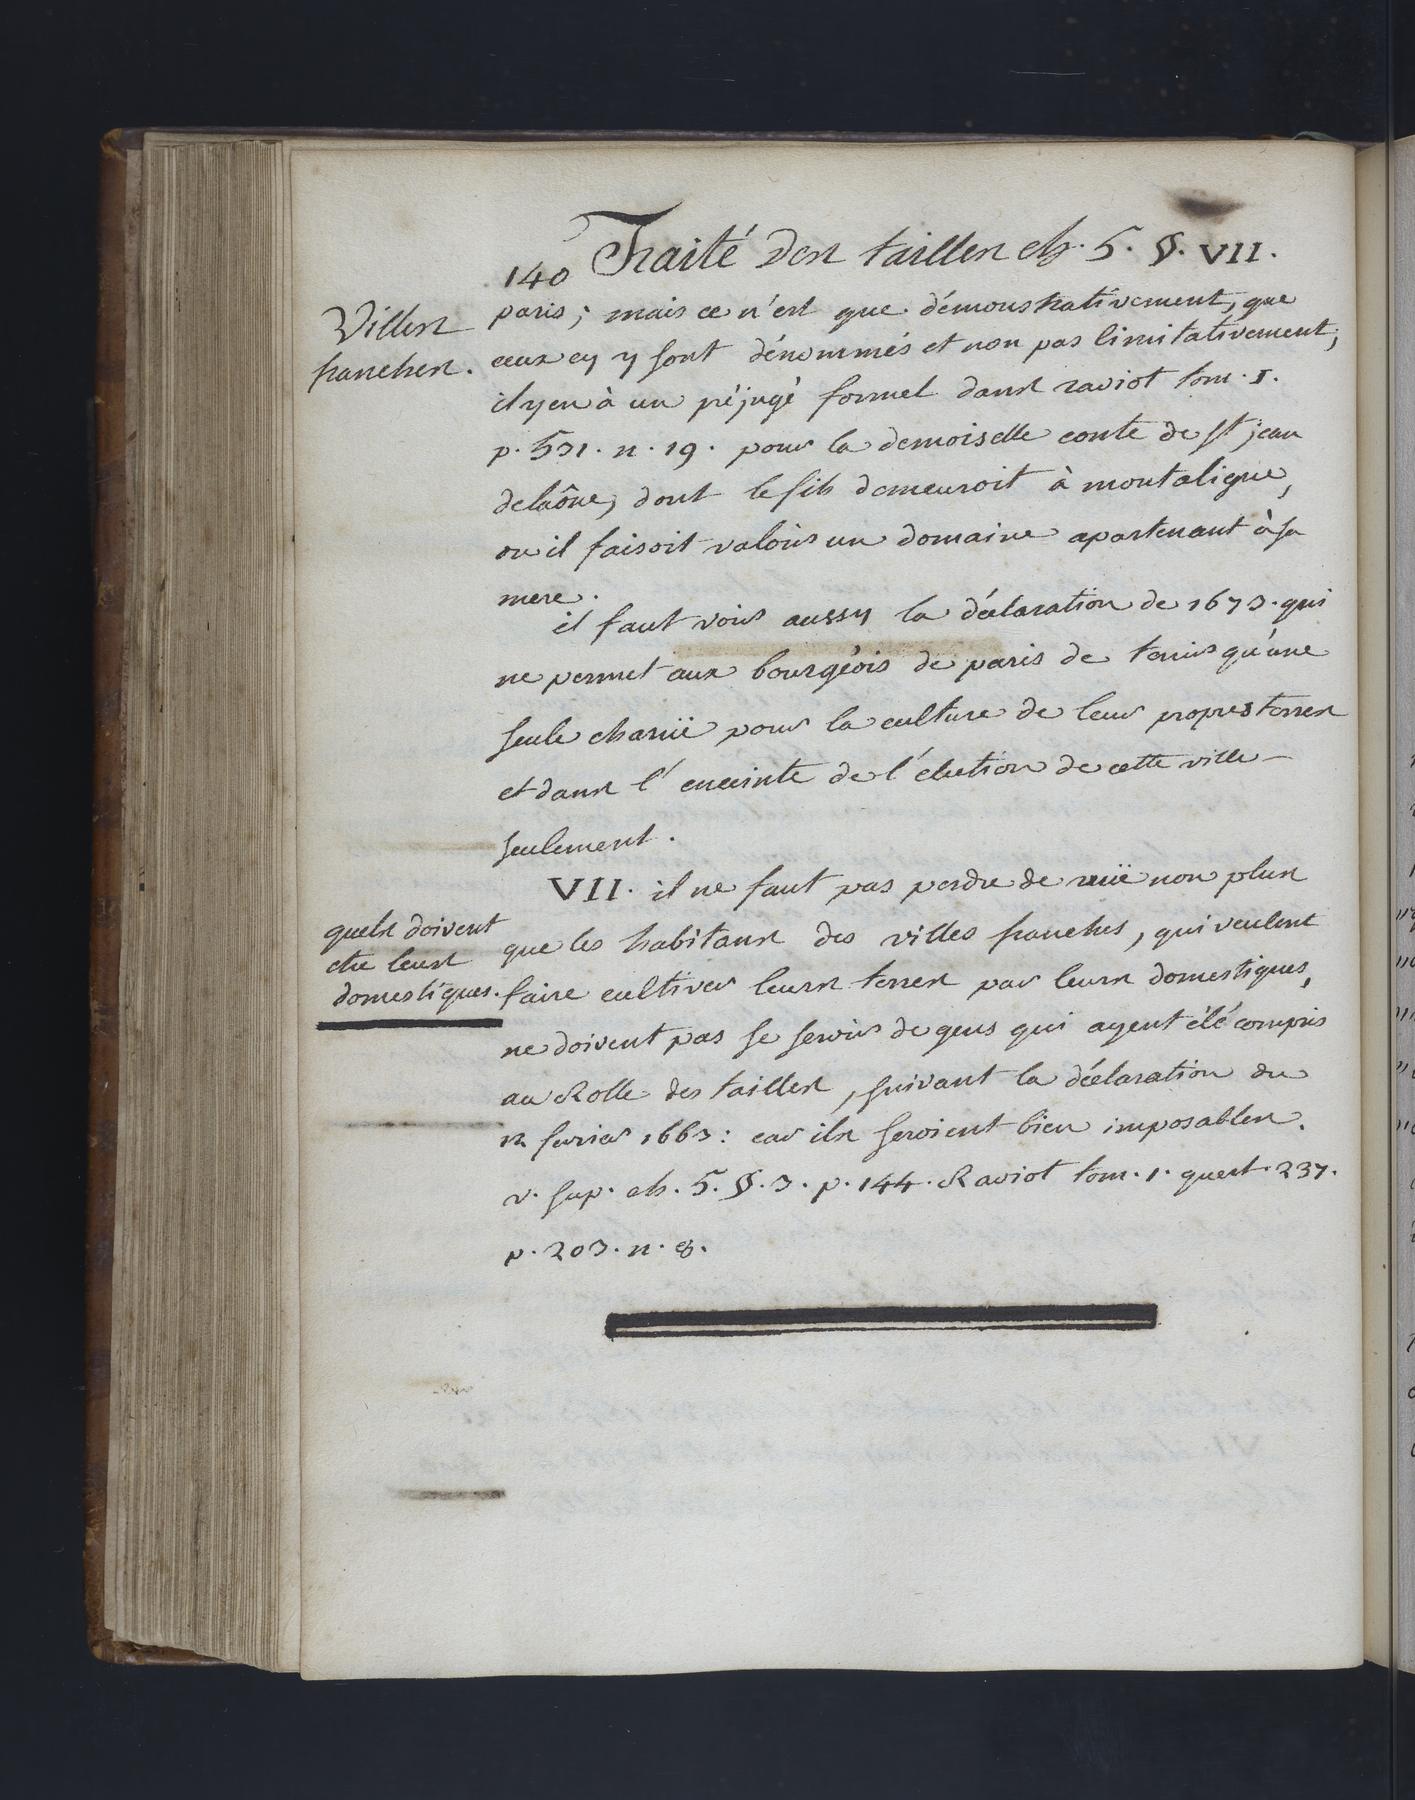 140 Traité des tailles ch. 5. §. VII.
Villes
franches.
paris; mais ce n'est que démonstrativement, que
ceux cy y sont dénommés et non pas limitativement;
il y en à un préjugé formel dans raviot tom. 1.
p. 531. n. 19. pour la demoiselle conte de St jean
delaône, dont le fils demeuroit à montaligne,
ou il faisoit valoir un domaine apartenant à sa
mere.
il faut voir aussy la déclaration de 1673. qui
ne permet aux bourgéois de paris de tenir qu'une
seule charüe pour la culture de leur propres terres
et dans l'enceinte de l'élection de cette ville
seulement.
VII. il ne faut pas perdre de vuïe non plus
quels doivent
être leurs
domestiques.
que les habitans des villes franches, qui veulent
faire cultiver leurs terres par leurs domestiques,
ne doivent pas se servir de gens qui ayent été compris
au Rolle des tailles, suivant la déclaration du
12 fevrier 1663: car ils seroient bien imposables.
v. sup. ch. 5. §. 3. p. 144. Raviot tom. 1. quest. 237.
p. 203. n. 8.